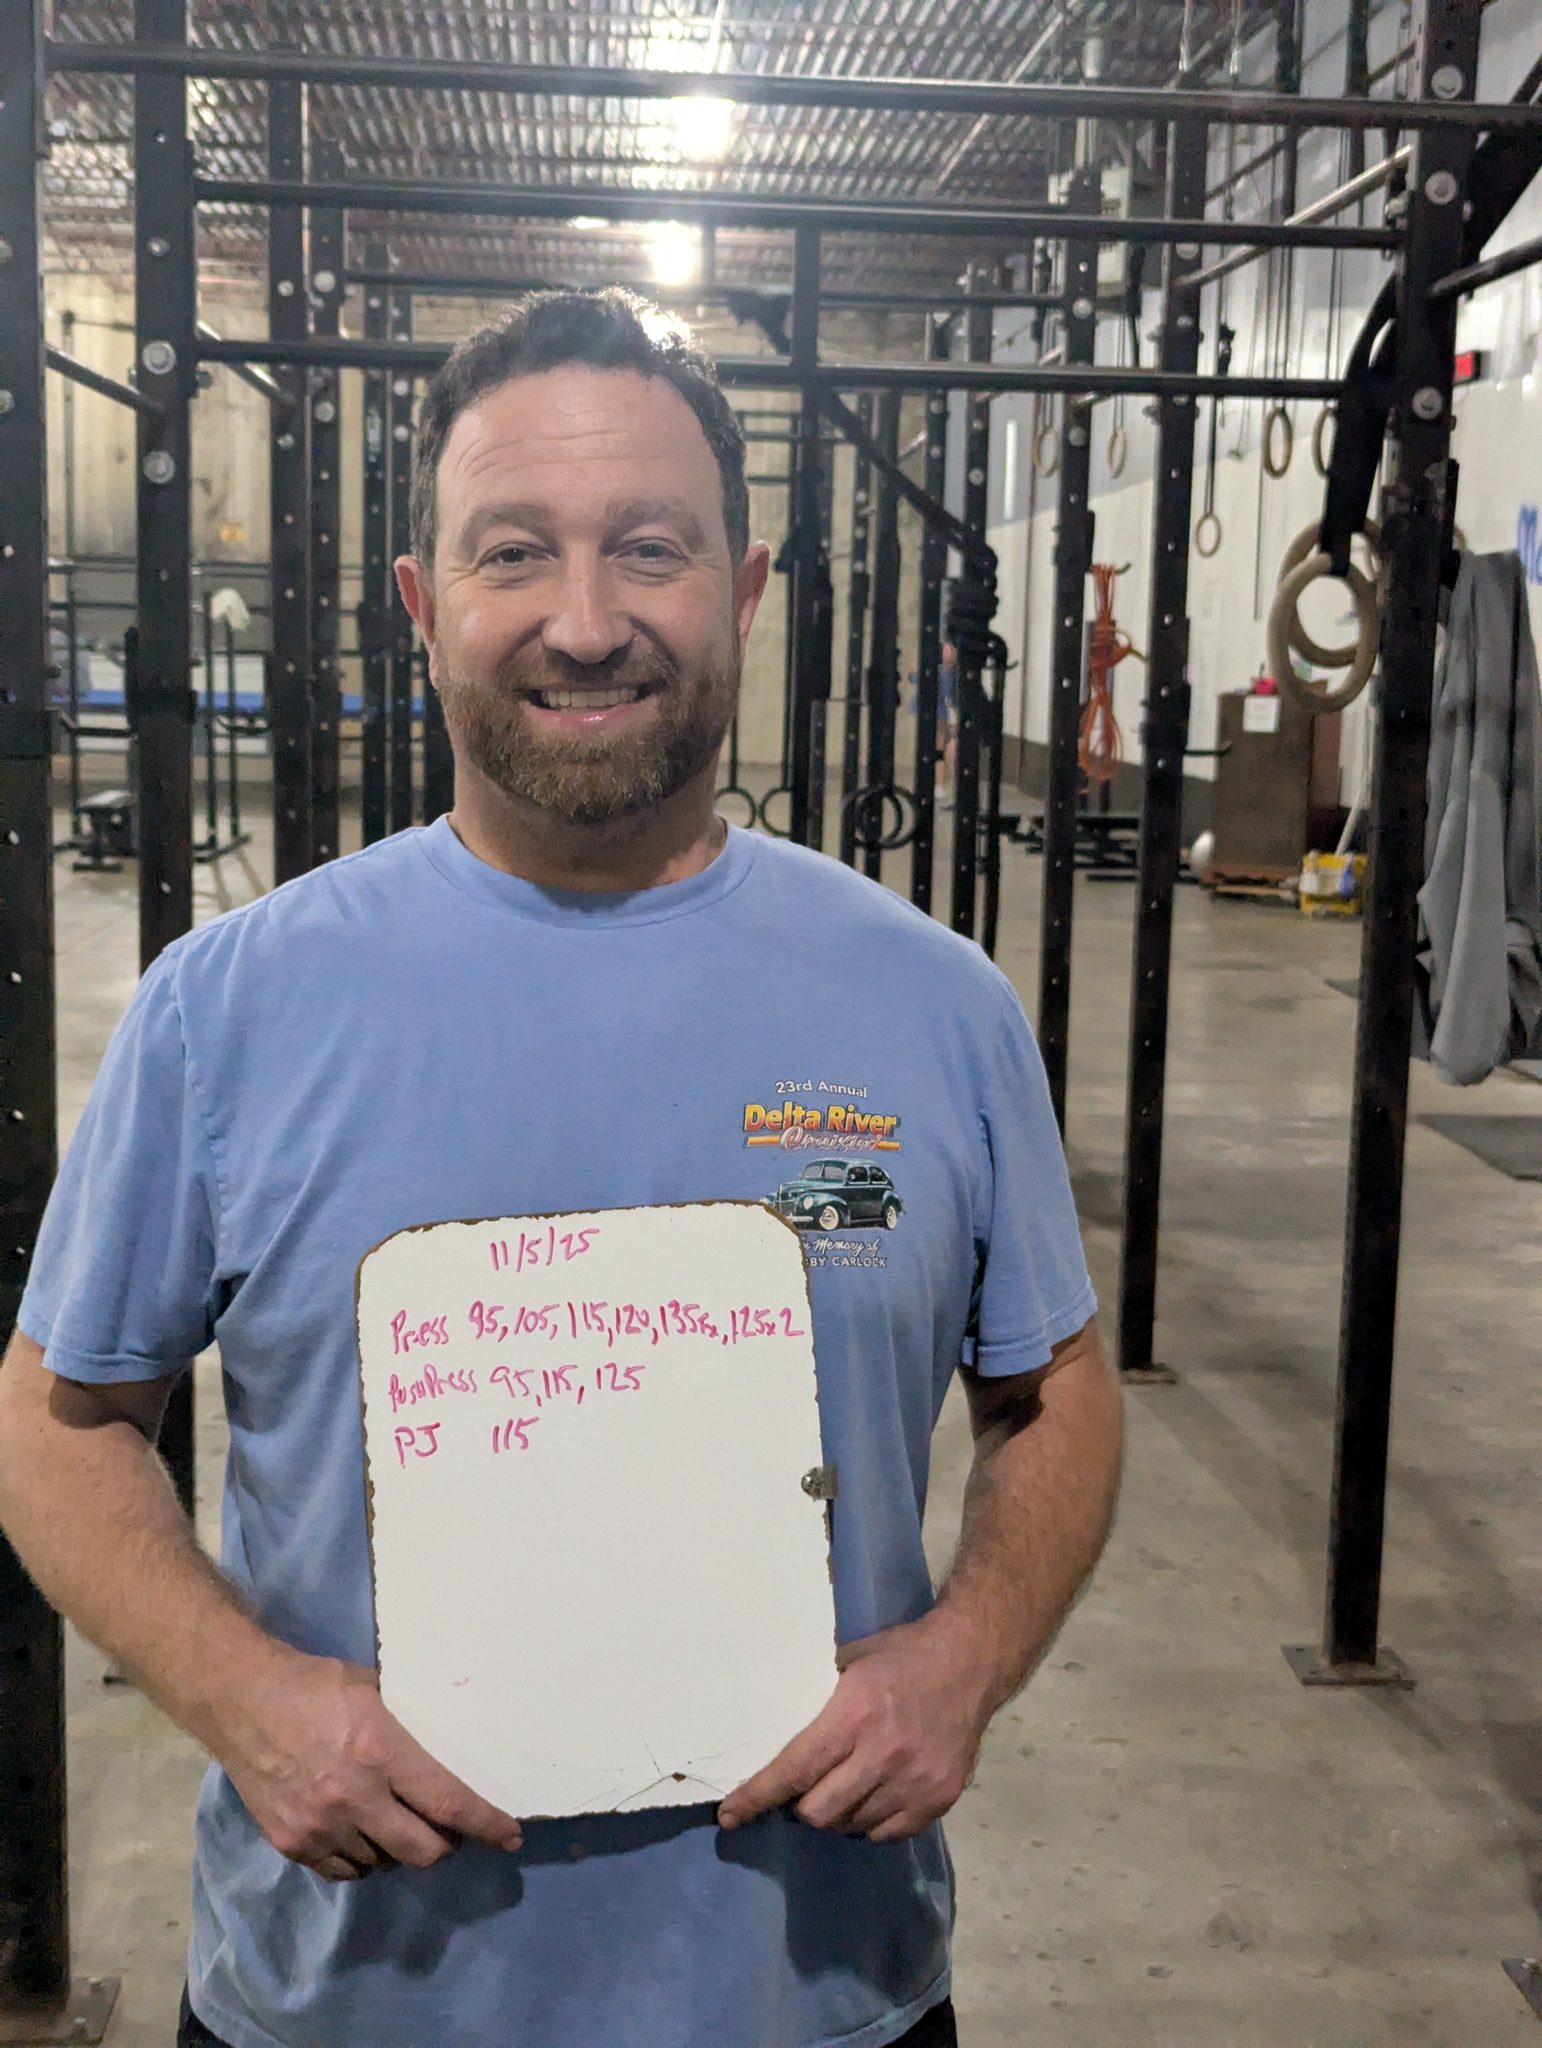 23rd Annual
Delta River
Cruisin'
Memory of
BY CARLOCK
11/5/25
Press 95, 105, 115, 120, 135Fx, 125x2
Push Press 95, 115, 125
PJ 115